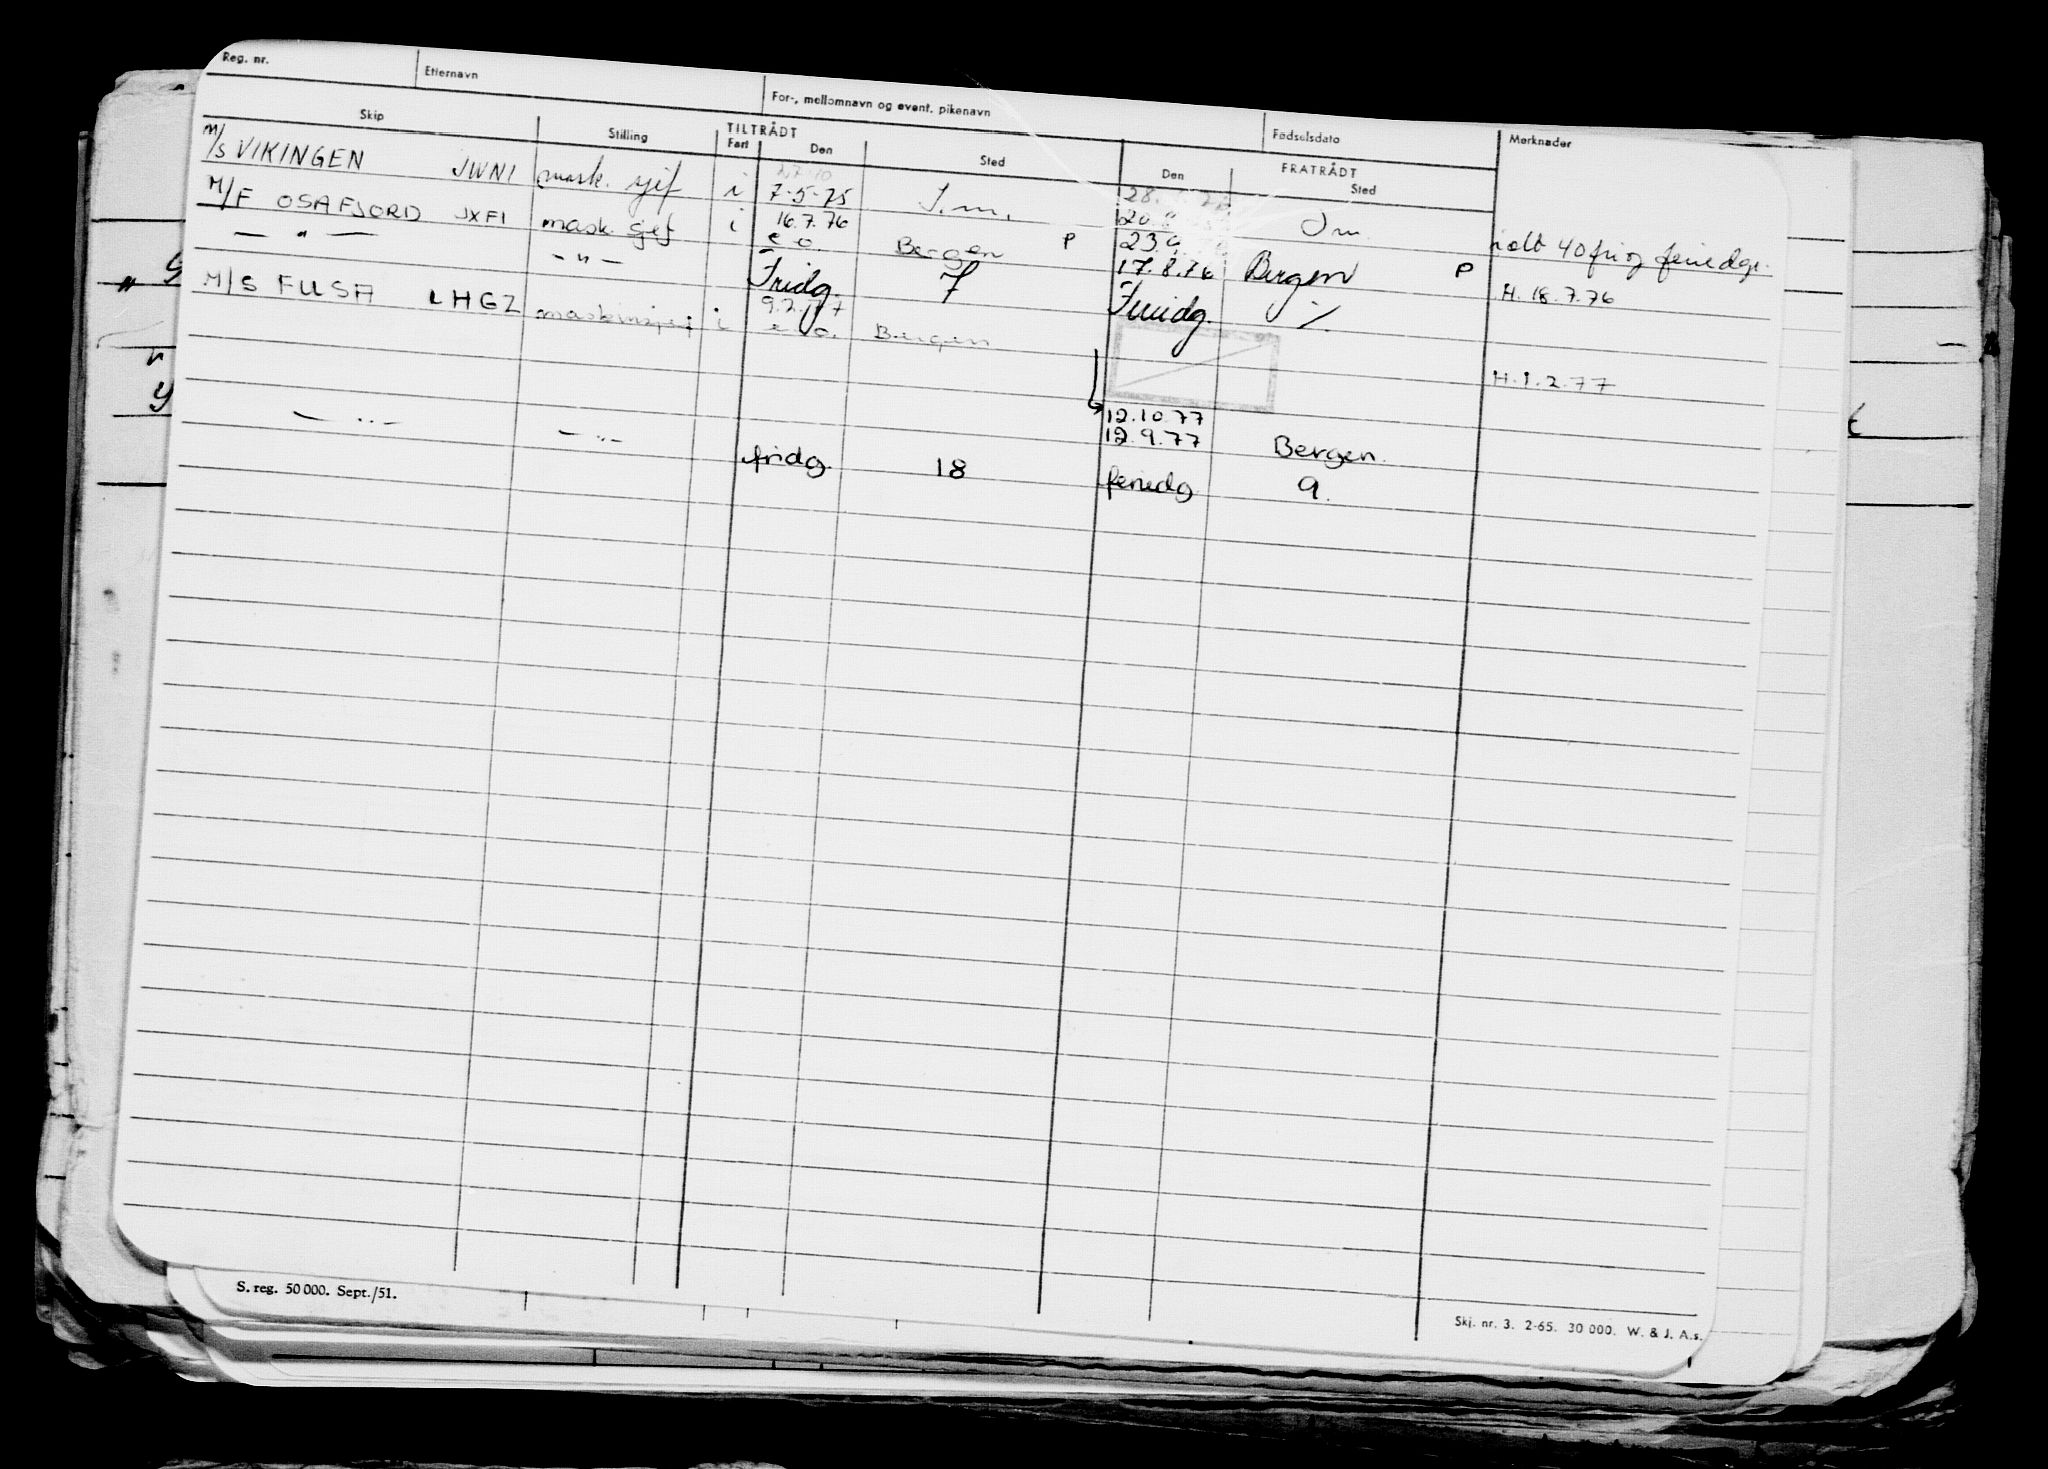 Reg. nr. Etternavn For-, mellomnavn og event. pikenavn Fødselsdato Merknader
Skip Stilling TILTRÅDT FRATRÅDT
Fart Den Sted Den Sted
M/S VIKINGEN JWNI mask. sjef i 7-5-75 28.
M/F OSAFJORD JXFI mask. sjef i 16.7.76 20.
— " — - " - e o. Bergen P 23.9 ialt 40 fri og feriedgr.
Fridg. 7 17.8.76 Bergen P H. 18.7.76
M/S FUSA LHGZ maskinsjef i 9.2.77 Feriedg. %
e. o. Bergen
H. 1.2.77
12.10.77
— " — - " - 12.9.77 Bergen.
fridg. 18 feriedg 9.
S. reg. 50 000. Sept./51.
Skj. nr. 3. 2-65. 30 000. W. & J. A.s.